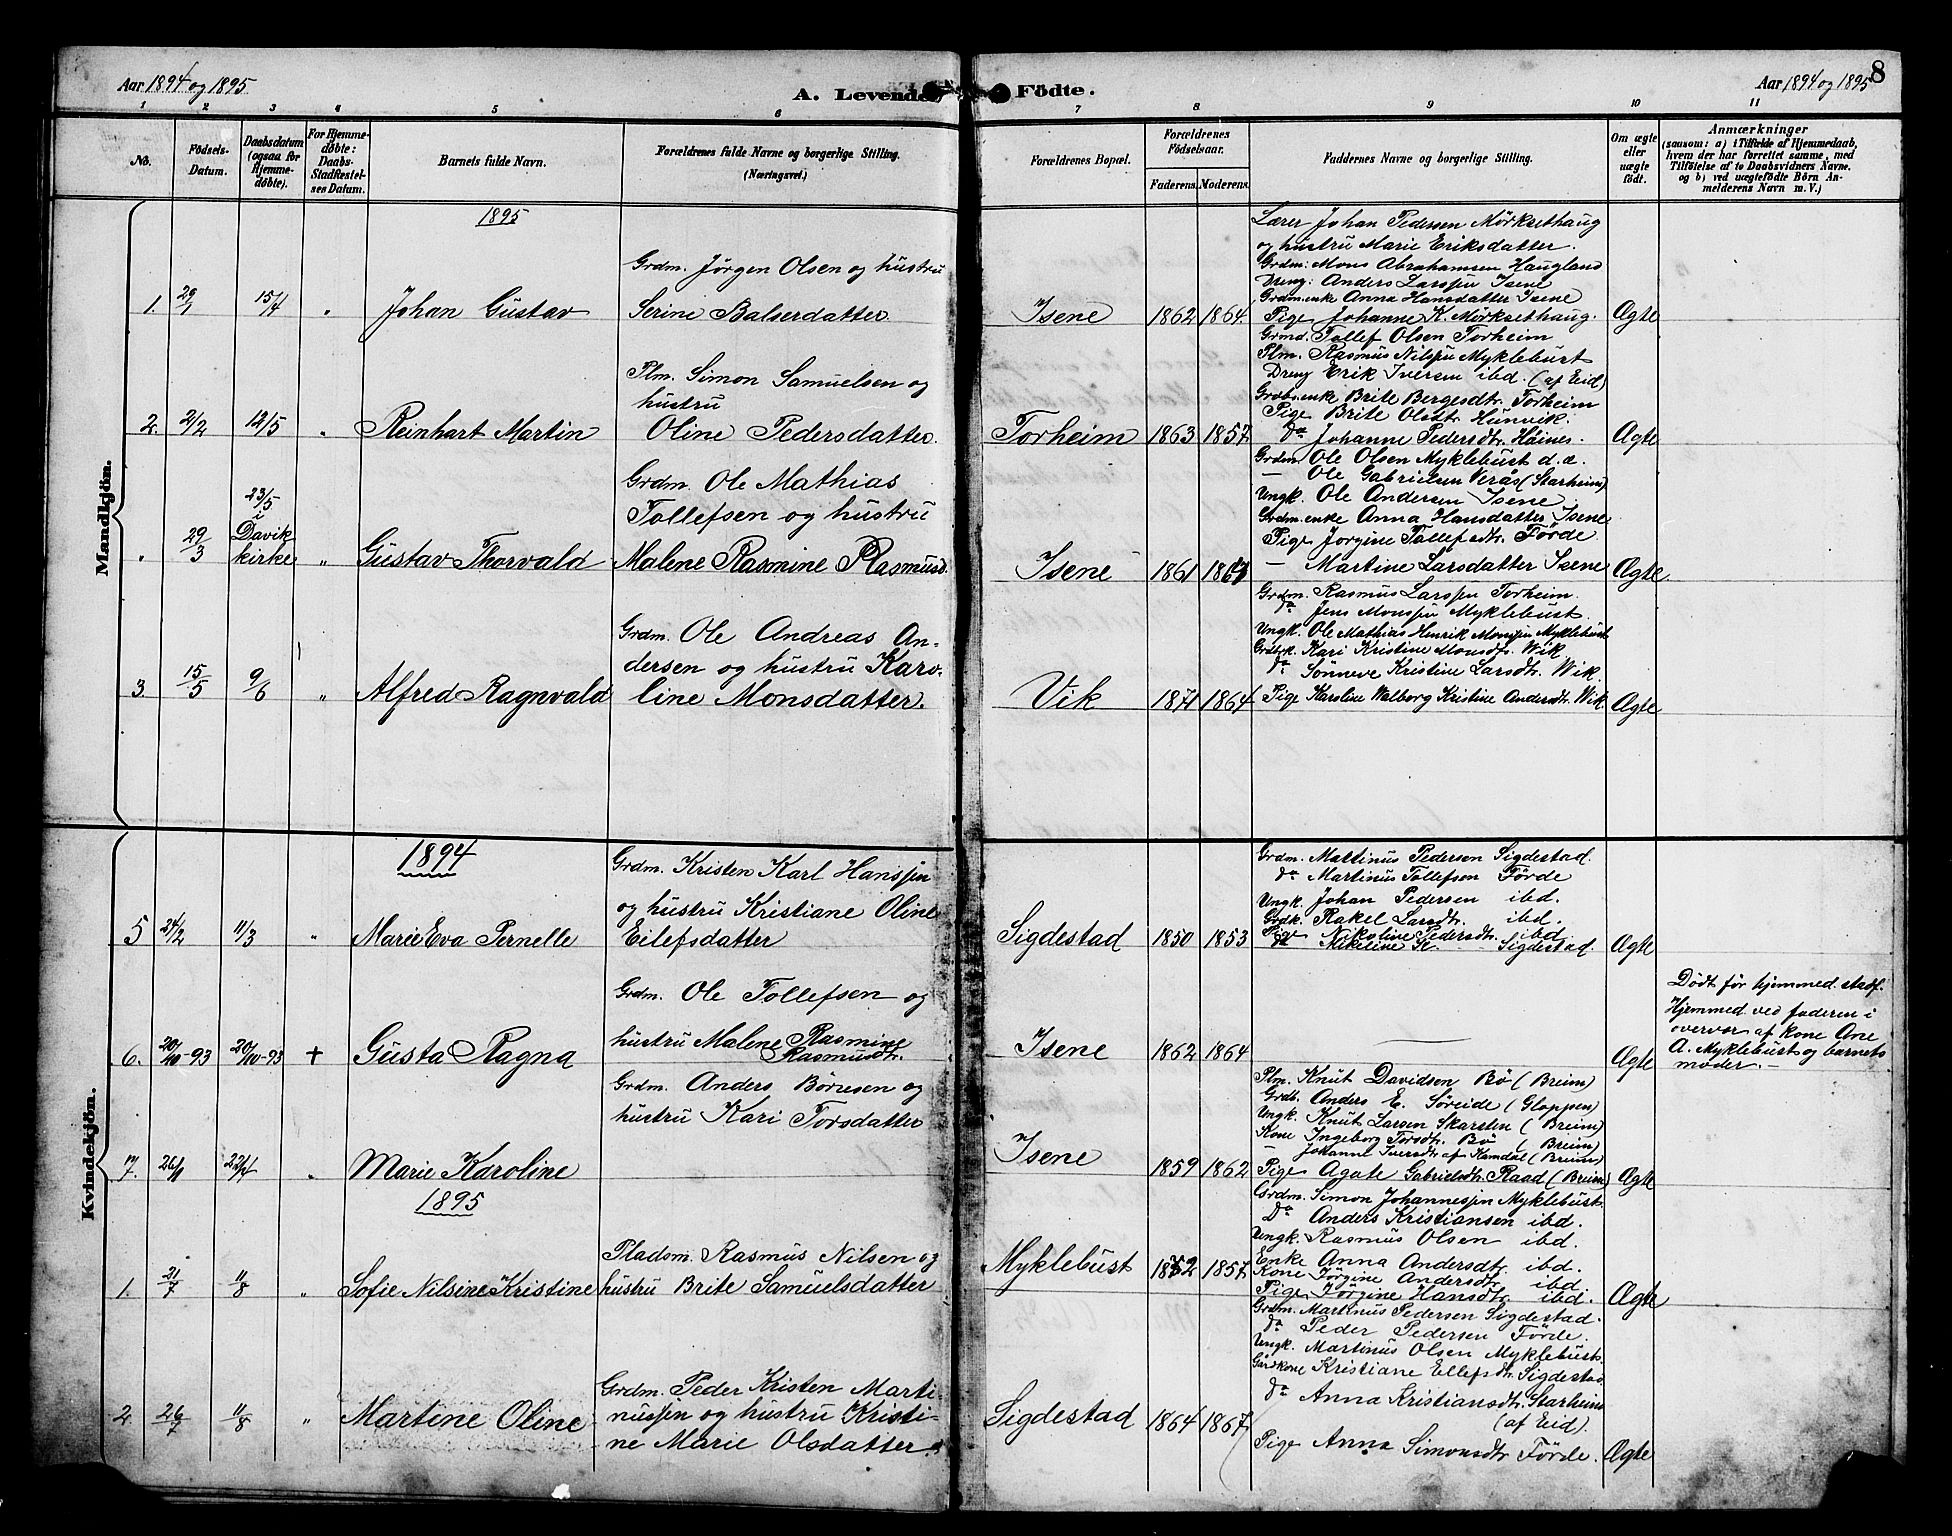 Aar 1894 og 1895
A. Levende Födte.
Aar 1894 og 1895
8
1 2 3 4 5 6 7 8 9 10 11
No.
Födsels-
Datum.
Daabsdatum
(ogsaa for
Hjemme-
döbte).
For Hjemme-
döbte:
Daabs-
Stadfæstel-
ses Datum.
Barnets fulde Navn.
Forældrenes fulde Navne og borgerlige Stilling.
(Næringsvei.)
Forældrenes Bopæl.
Forældrenes
Födselsaar.
Faderens. Moderens.
Faddernes Navne og borgerlige Stilling.
Om ægte
eller
uægte
födt.
Anmærkninger
(saasom: a) i Tilfælde af Hjemmedaab,
hvem der har forrettet samme, med
Tilföielse af to Daabsvidners Navne.
og b) ved uægtefödte Börn An-
melderens Navn m. V.)
Mandkjön.
1895
1. 29/1 15/4 " Johan Gustav
Grdm. Jörgen Olsen og hustru
Serine Balserdatter
Isene 1862 1864
Lærer Johan Pedersen Mörksethaug
og hustru Marie Eriksdatter.
Grdm: Mons Abrahamsen Haugland
Dreng: Anders Larssen Isene
Grdm.enke Anna Hansdatter Isene
Pige Johanne K. Mörksethaug.
Ægte
2. 2/2 12/5 " Reinhart Martin
Plm. Simon Samuelsen og
hustru
Oline Pedersdatter.
Torheim 1863 1857
Grmd. Tollef Olsen Torheim
Plm. Rasmus Nilssen Myklebust
Dreng Erik Iversen ibd. (af Eid)
Grdb.enke Brite Bergesdtr. Torheim
Pige Brite Olsdtr. Hunvik.
do Johanne Pedersdtr. Háines.
Ægte
" 29/3 23/5
i
Davik
kirke " Gustav Thorvald
Grdm. Ole Mathias
Tollefsen og hustru
Malene Rasmine Rasmusd.
Isene 1861
Grdm. Ole Olsen Myklebust d.æ.
— Ole Gabrielsen Verås (Starheim)
Ungk. Ole Andersen Isene
Grdm.enke Anna Hansdatter Isene
Pige Jorgine Tollefsdtr. Förde
— Martine Larsdatter Isene
Ægte
3. 15/5 9/6 " Alfred Ragnvald
Grdm. Ole Andreas An-
dersen og hustru Karo-
line Monsdatter.
Vik 1871 1864
Grdm. Rasmus Larssen Torheim.
do Jens Monssen Myklebust
Ungk. Ole Mathias Henrik Monssen Myklebust
Grdbrk. Kari Kristine Monsdtr. Wik
do Sönneve Kristine Larsdtr. Wik.
Pige Karoline Walborg Kristine Andersdtr. Wik
Ægte
Kvindekjön.
1894
5 24/2 11/3 " Marie Eva Pernelle
Grdm. Kristen Karl Hanssen
og hustru Kristiane Oline
Eilefsdatter
Sigdestad 1850 1853
Grdm. Martinus Pedersen Sigdestad.
do Martinus Tollefsen Förde
Ungk. Johan Pedersen ibd.
Grdk. Rakel Larsdtr. ibd.
Pige Nikoline Pedersdtr. ibd.
do Nikoline Sigdestad.
Ægte
6. 20/10-93 20/10-93 + Gusta Ragna
Grdm. Ole Tollefsen og
hustru Malene Rasmine
Rasmusdtr.
Isene 1862 1864
Ægte
Dödt før hjemmed. stadf.
Hjemmed. ved faderen i
overvær af kone Ane
A. Myklebust og barnets
moder. —
7. " Marie Karoline
Grdm. Anders Börnesen og
hustru Kari Torsdatter
Isene 1859 1862
Plm. Knut Davidsen Bö (Breim)
Grdb. Anders E. Söreide (Gloppen)
Ungk. Knut Larsen Skarsten (Breim)
Kone Ingeborg Torsdtr. Bö (Breim)
— Johanne Iversdtr. af Kamdal (Breim)
Pige Agate Gabrielsdtr. Raad (Breim)
Ægte
1895
1. 21/7 11/8 " Sofie Nilsine Kristine
Pladsm. Rasmus Nilsen og
hustru Brite Samuelsdatter
Myklebust 1852 1857
Grdm. Simon Johannessen Myklebust.
Do Anders Kristiansen ibd.
Ungk. Rasmus Olsen ibd.
Enke Anna Andersdtr. ibd.
Kone Jörgine Andersdtr. ibd.
Pige Jörgine Hansdtr. ibd.
Ægte
2 26/7 11/8 " Martine Oline
Grdm. Peder Kristen Marti-
nussen og hustru Kristi-
ne Marie Olsdatter
Sigdestad 1864 1867
Grdm. Martinus Pedersen Sigdestad.
do Peder Pedersen Förde.
Ungk. Martinus Olsen Myklebust.
Gårdkone Kristiane Ellefsdtr. Sigdestad
do Anna Kristiansdtr. Starheim
(af Eid).
Pige Anna Simonsdtr. Förde.
Ægte